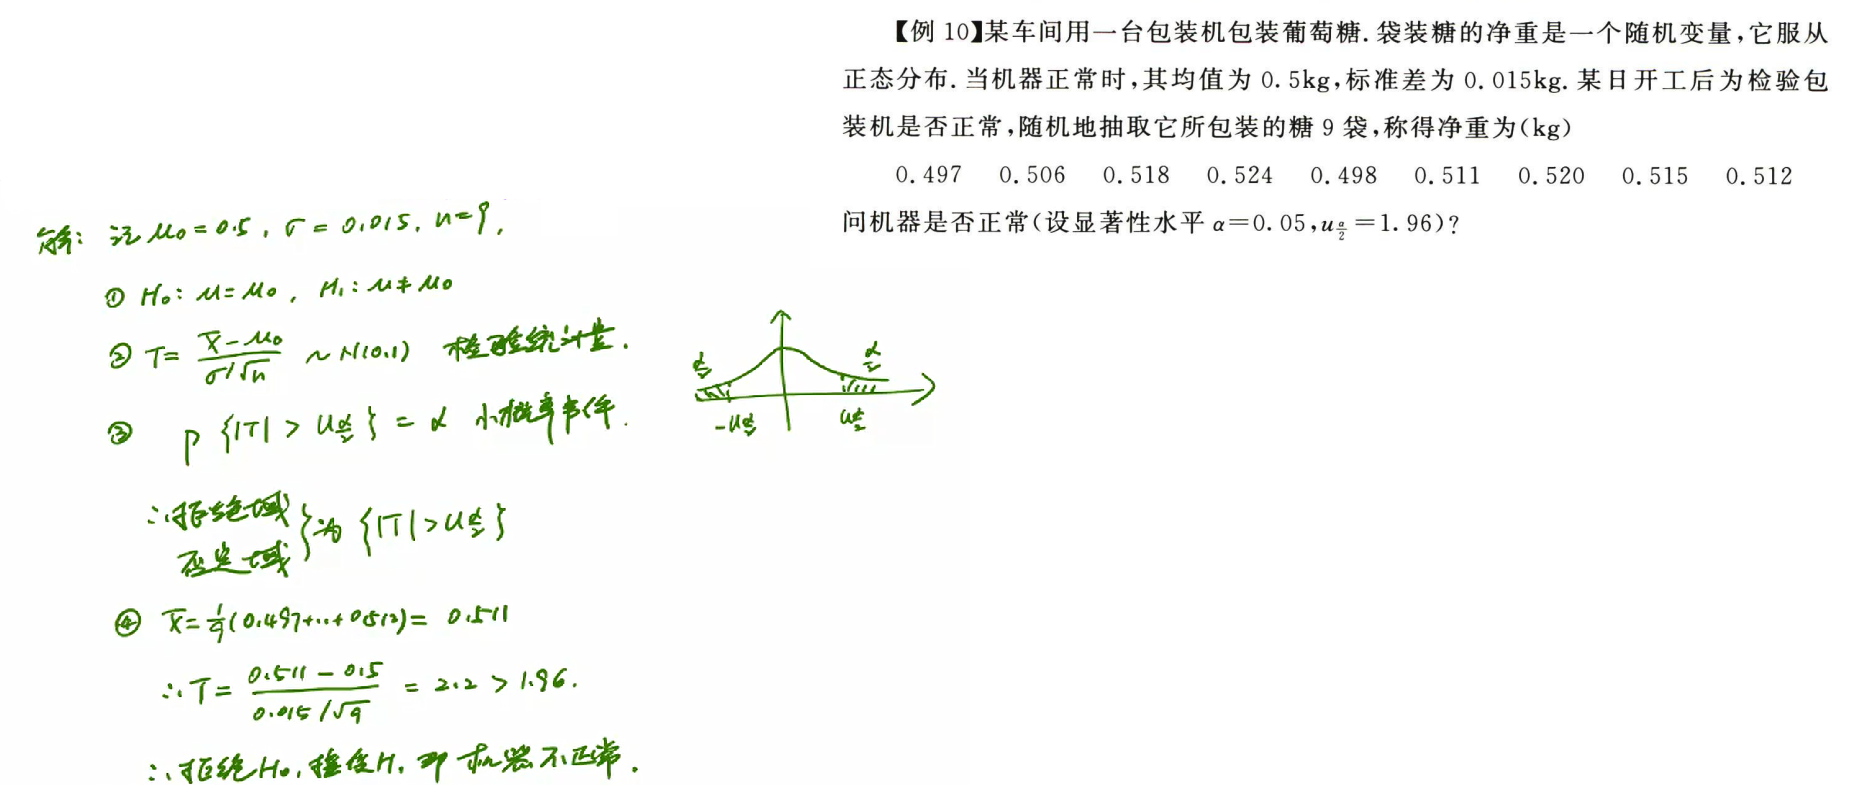 【例 10】某车间用一台包装机包装葡萄糖. 袋装糖的净重是一个随机变量,它服从
正态分布. 当机器正常时,其均值为 0.5kg,标准差为 0.015kg. 某日开工后为检验包
装机是否正常,随机地抽取它所包装的糖 9 袋,称得净重为(kg)
0.497 0.506 0.518 0.524 0.498 0.511 0.520 0.515 0.512
问机器是否正常(设显著性水平 α=0.05,u_{α/2}=1.96)?
解: 记 μ₀=0.5, σ=0.015, n=9,
① H₀: μ=μ₀, H₁: μ≠μ₀
② T= (x̄-μ₀)/(σ/√n) ~ N(0,1) 检验统计量.
α/2 α/2
-u_{α/2} u_{α/2}
③ P{|T|>u_{α/2}}=α 小概率事件.
∴拒绝域
否定域 }为{|T|>u_{α/2}}
④ x̄=1/9(0.497+…+0.512)=0.511
∴T= (0.511-0.5)/(0.015/√9) =2.2>1.96.
∴拒绝H₀,接受H₁ 即机器不正常.